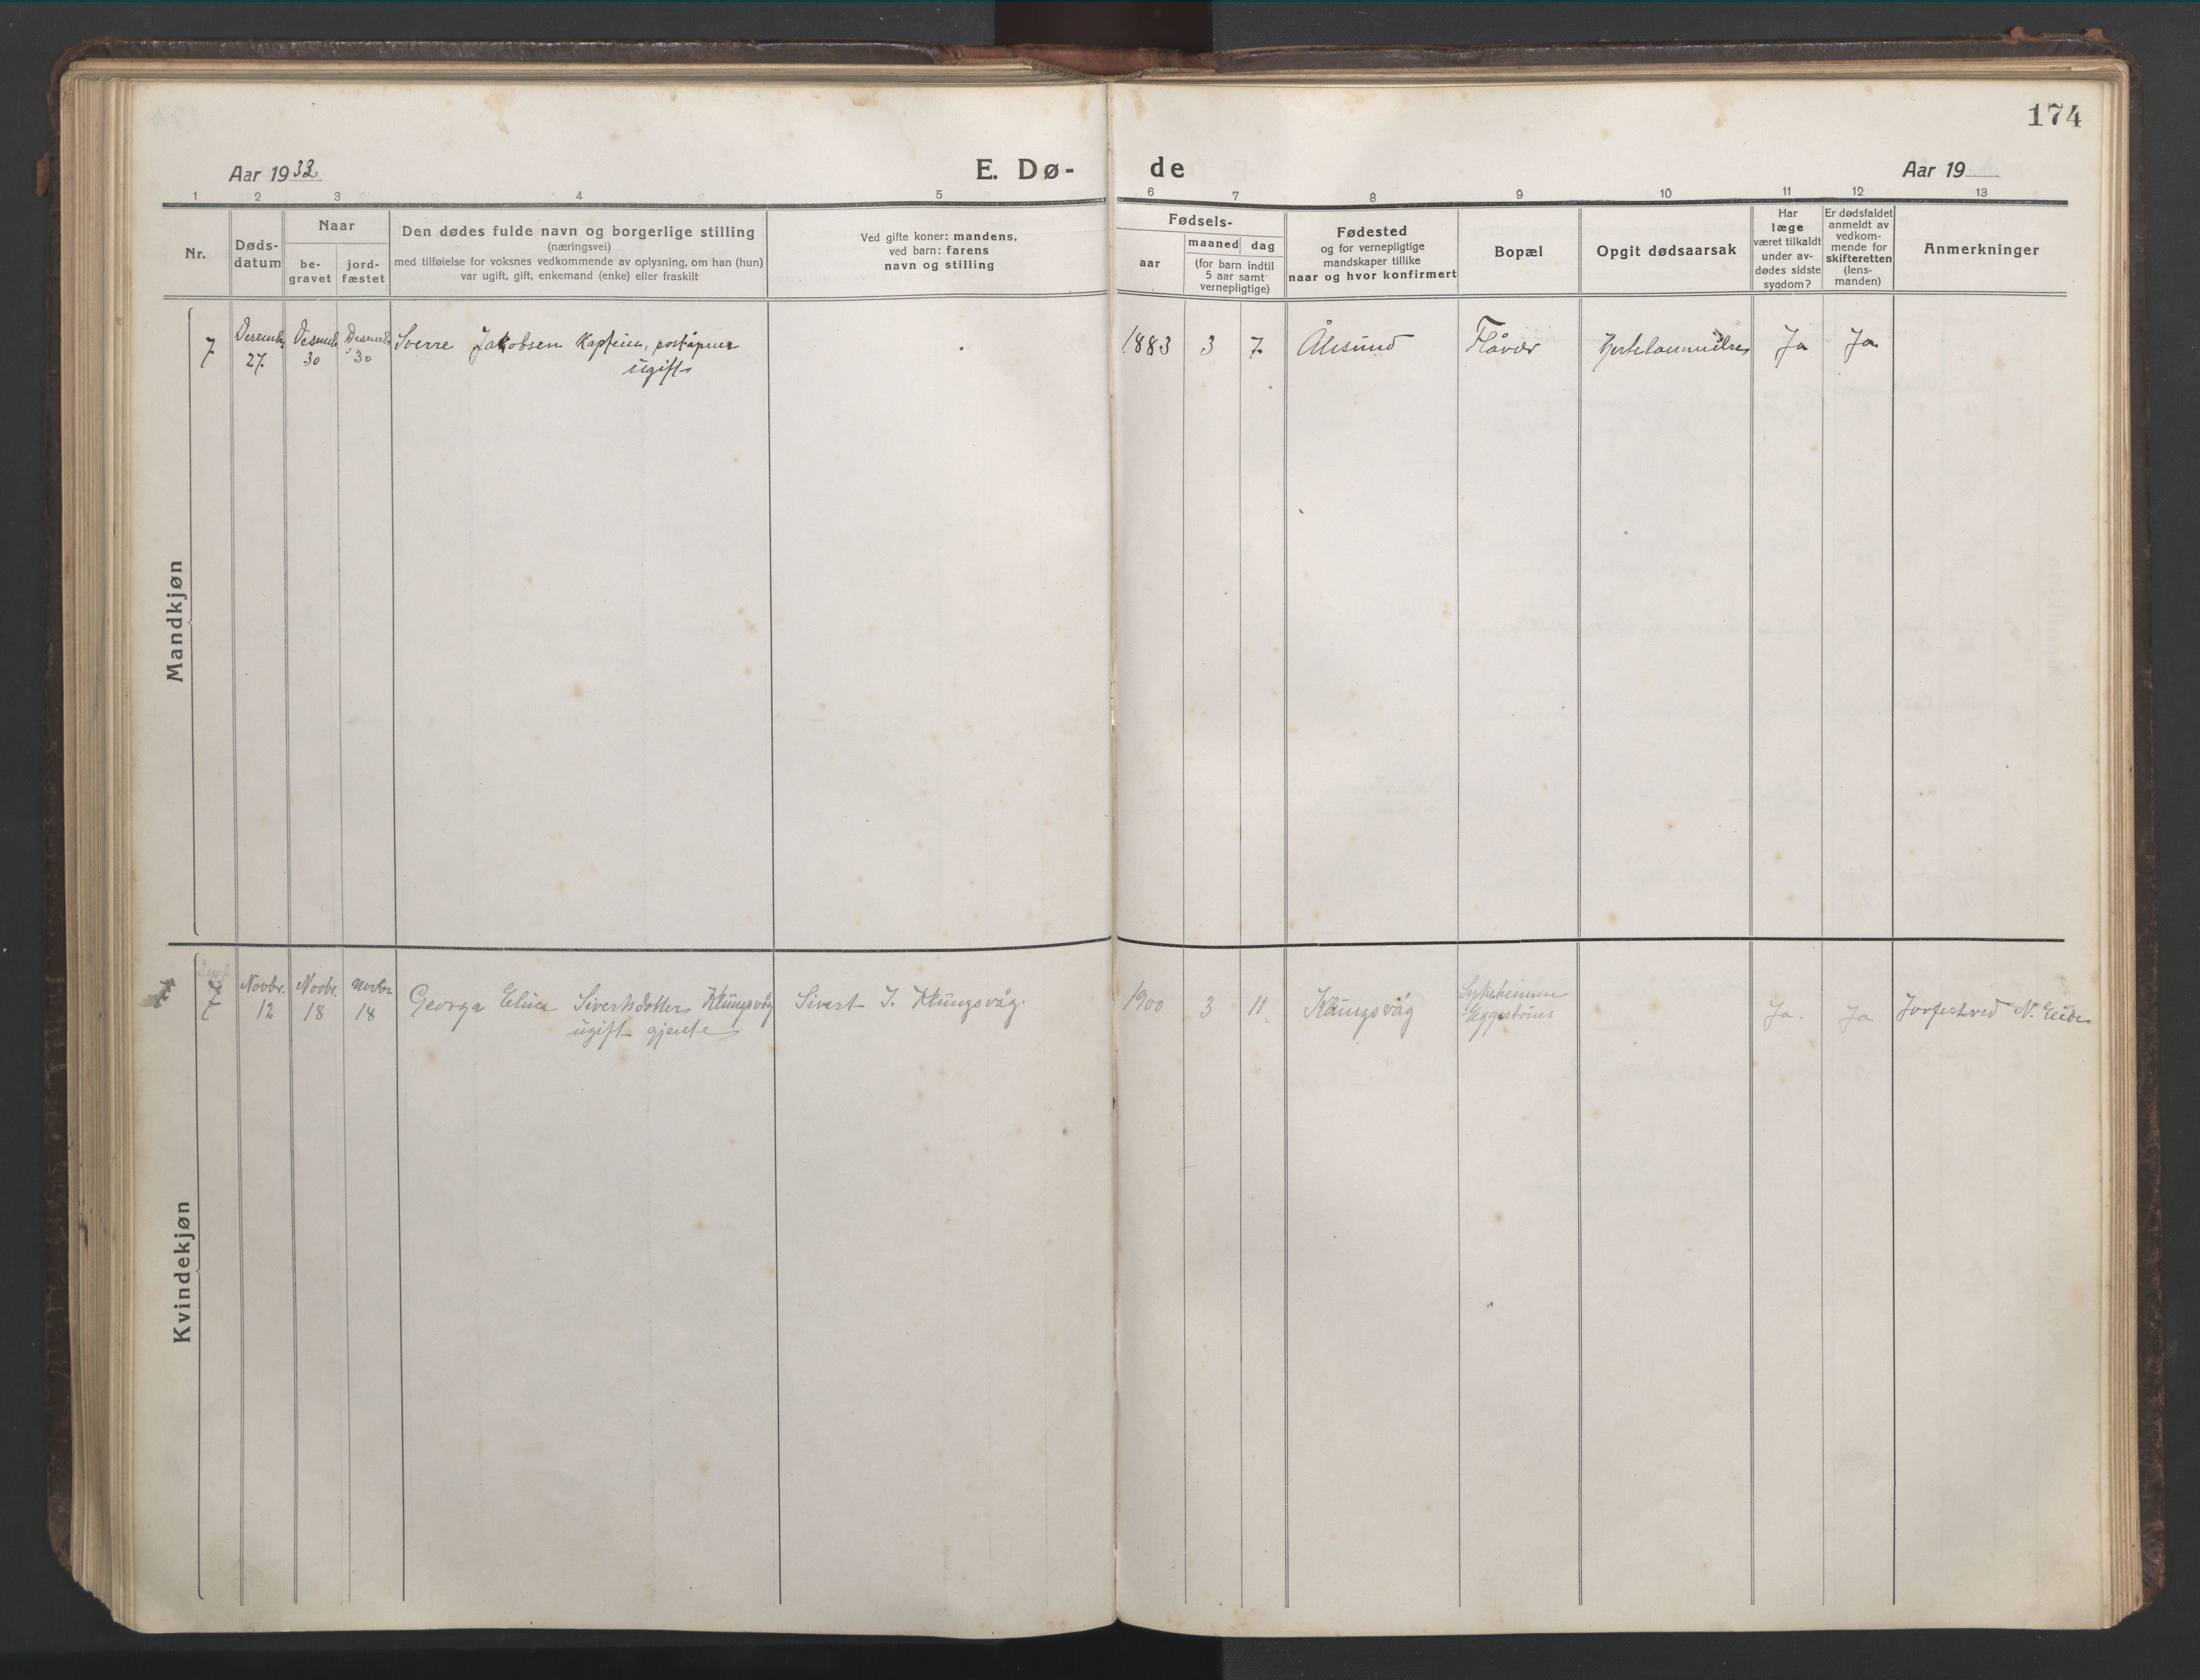 174
Aar 1932
E. Dø-
de
Aar 19
1 2 3 4 5 6 7 8 9 10 11 12 13
Nr.
Døds-
datum
Naar
be-
gravet
jord-
fæstet
Den dødes fulde navn og borgerlige stilling
(næringsvei)
med tilføielse for voksnes vedkommende av oplysning, om han (hun)
var ugift, gift, enkemand (enke) eller fraskilt
Ved gifte koner: mandens,
ved barn: farens
navn og stilling
Fødsels-
aar
maaned dag
(for barn indtil
5 aar samt
vernepligtige)
Fødested
og for vernepligtige
mandskaper tillike
naar og hvor konfirmert
Bopæl
Opgit dødsaarsak
Har
læge
været tilkaldt
under av-
dødes sidste
sygdom?
Er dødsfaldet
anmeldt av
vedkom-
mende for
skifteretten
(lens-
manden)
Anmerkninger
Mandkjøn
7 27 30 30 Sverre Jakobsen Kaptein, poståpner 1883 3 7 Ålesund Flåvær Ja Ja
ugift
Kvindekjøn
7
Novbr. Novbr. Novbr
12 18 18 Georga Elina Sivertsdotter Klungsvåg Sivert J. Klungsvåg. 1900 3 11 Klungsvåg Ja. Ja Jorfest ved N. Eide
ugift gjente
Sykeheimen
Eggesbønes